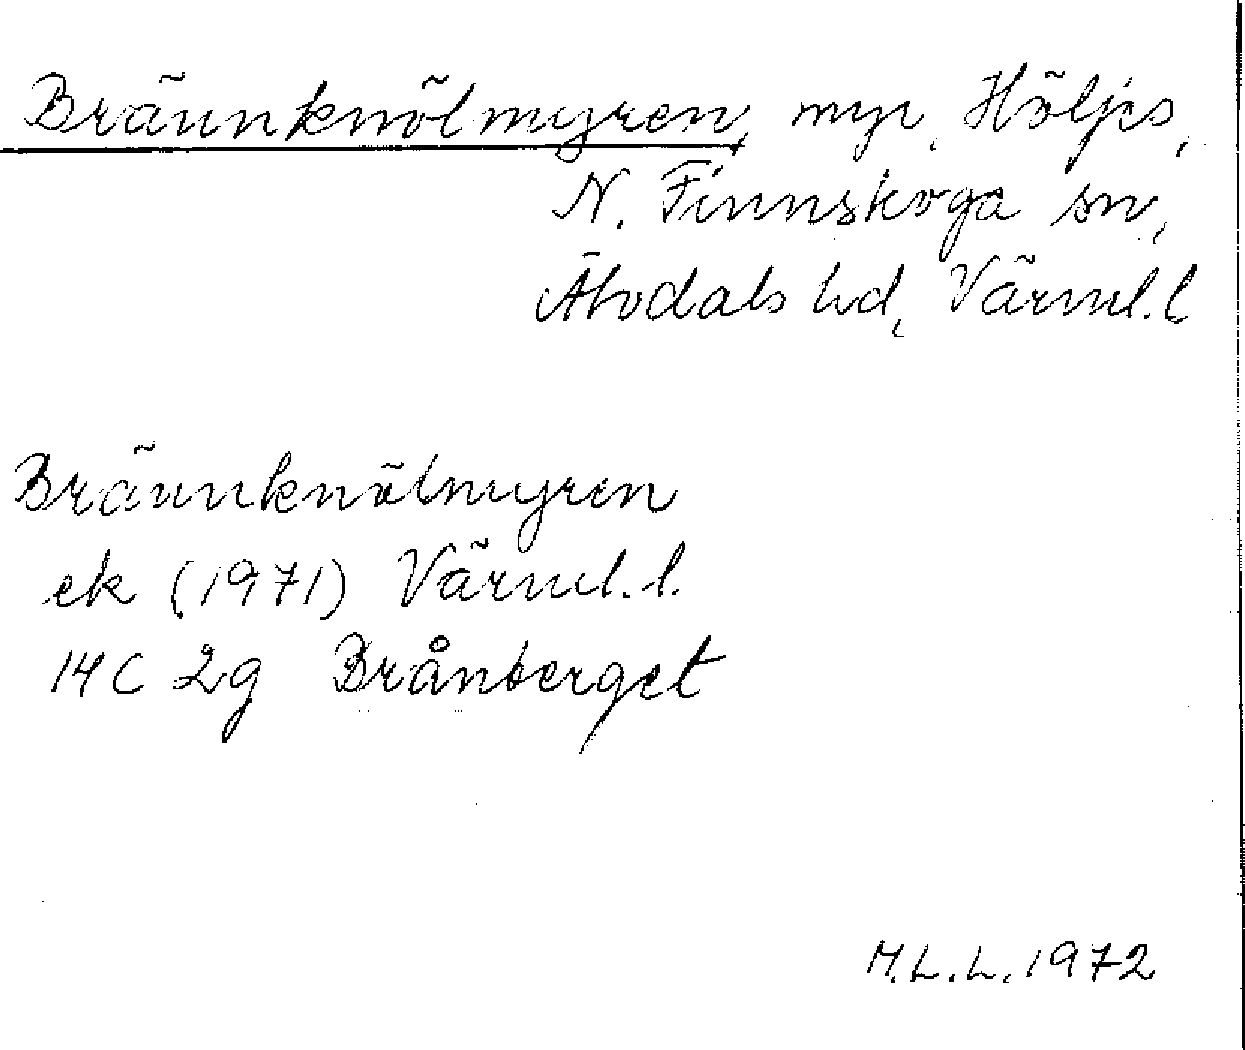 Brännknölmyren, myr, Höljes,
N. Finnskoga sn,
Älvdals hd, Värml. l
Brännknölmyren
ek (1971) Värml. l.
14 C 2g Brånberget
M.L.L. 1972